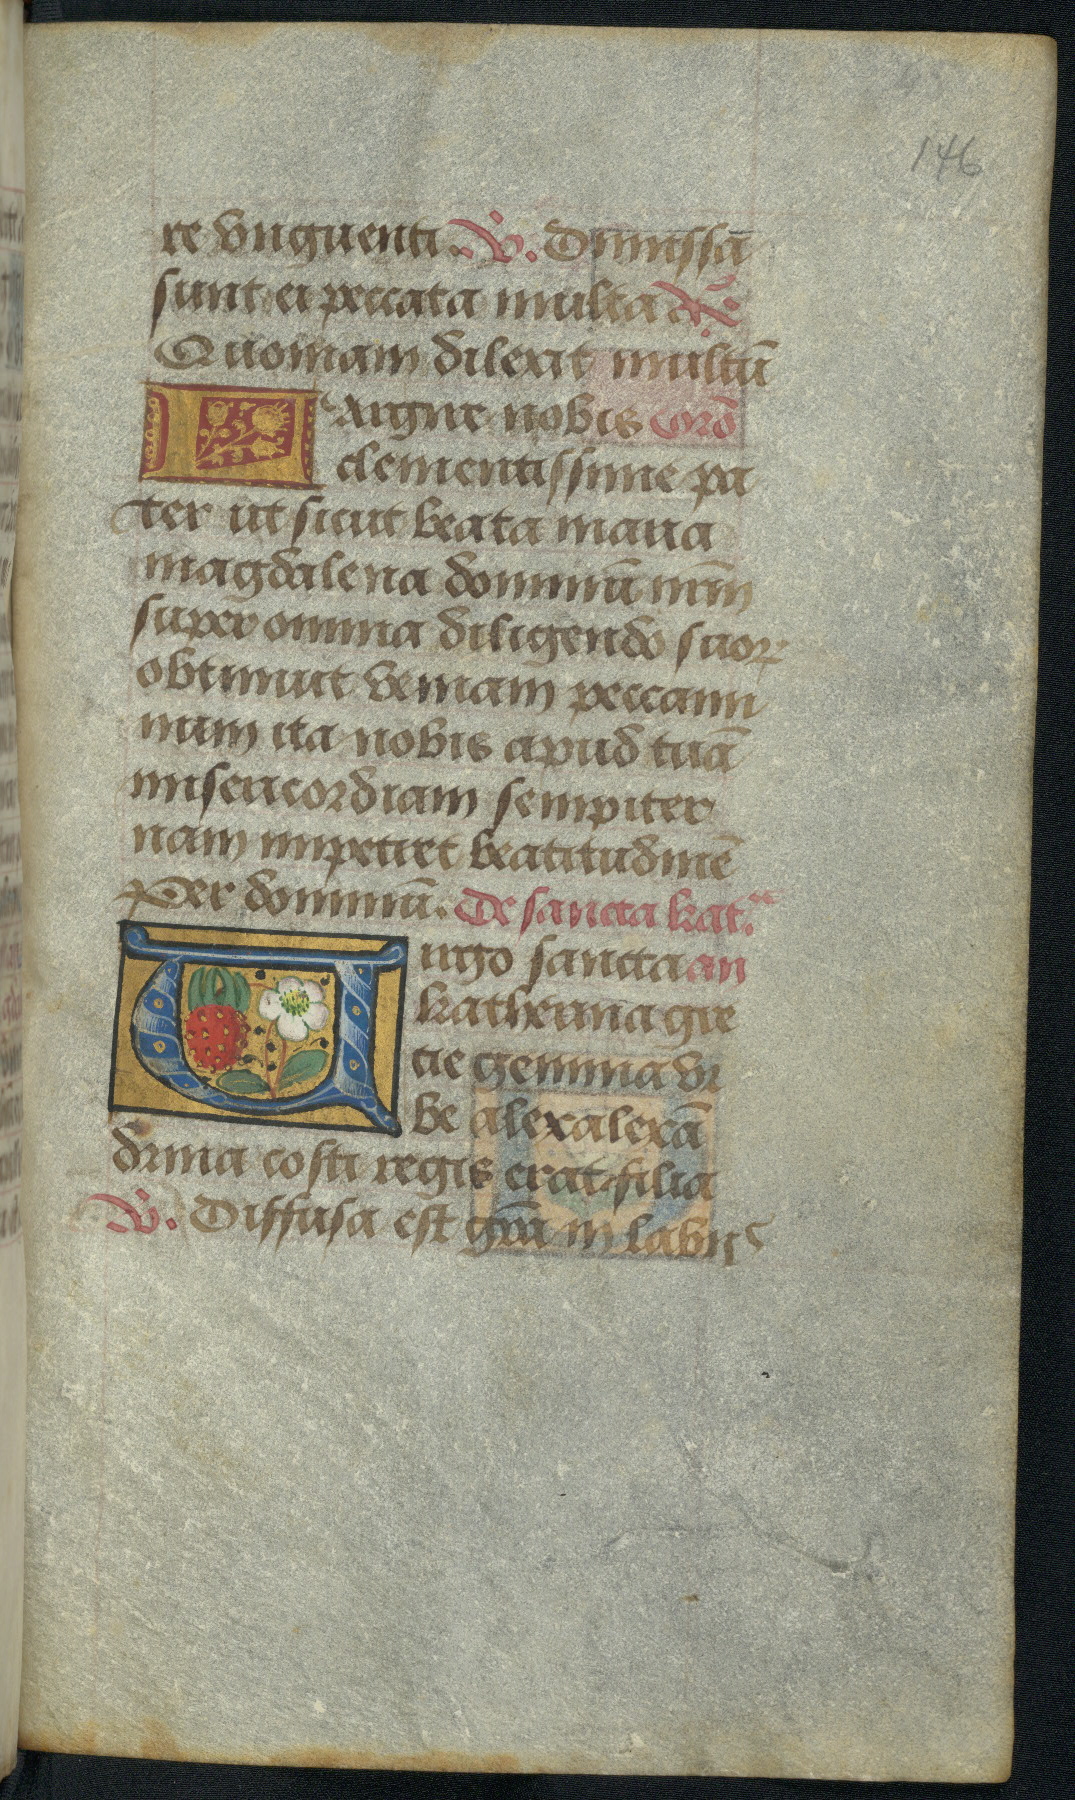 146
re unguenti. V. Dimissa
sunt ei peccata multa R.
Quoniam dilexit multū
Largire nobis orō
clementissime pa
ter ut sicut beata maria
magdalena dominū nrm̄
super omnia diligendo suoꝝ
obtinuit veniam peccami
num ita nobis apud tuā
misericordiam sempiter
nam impetret beatitudinē
Per dominū. De sancta kat.
Virgo sancta an
katherina gre
cie gemma vr
be alexalexā
drina costi regis erat filia
V. Diffusa est grā in labiis